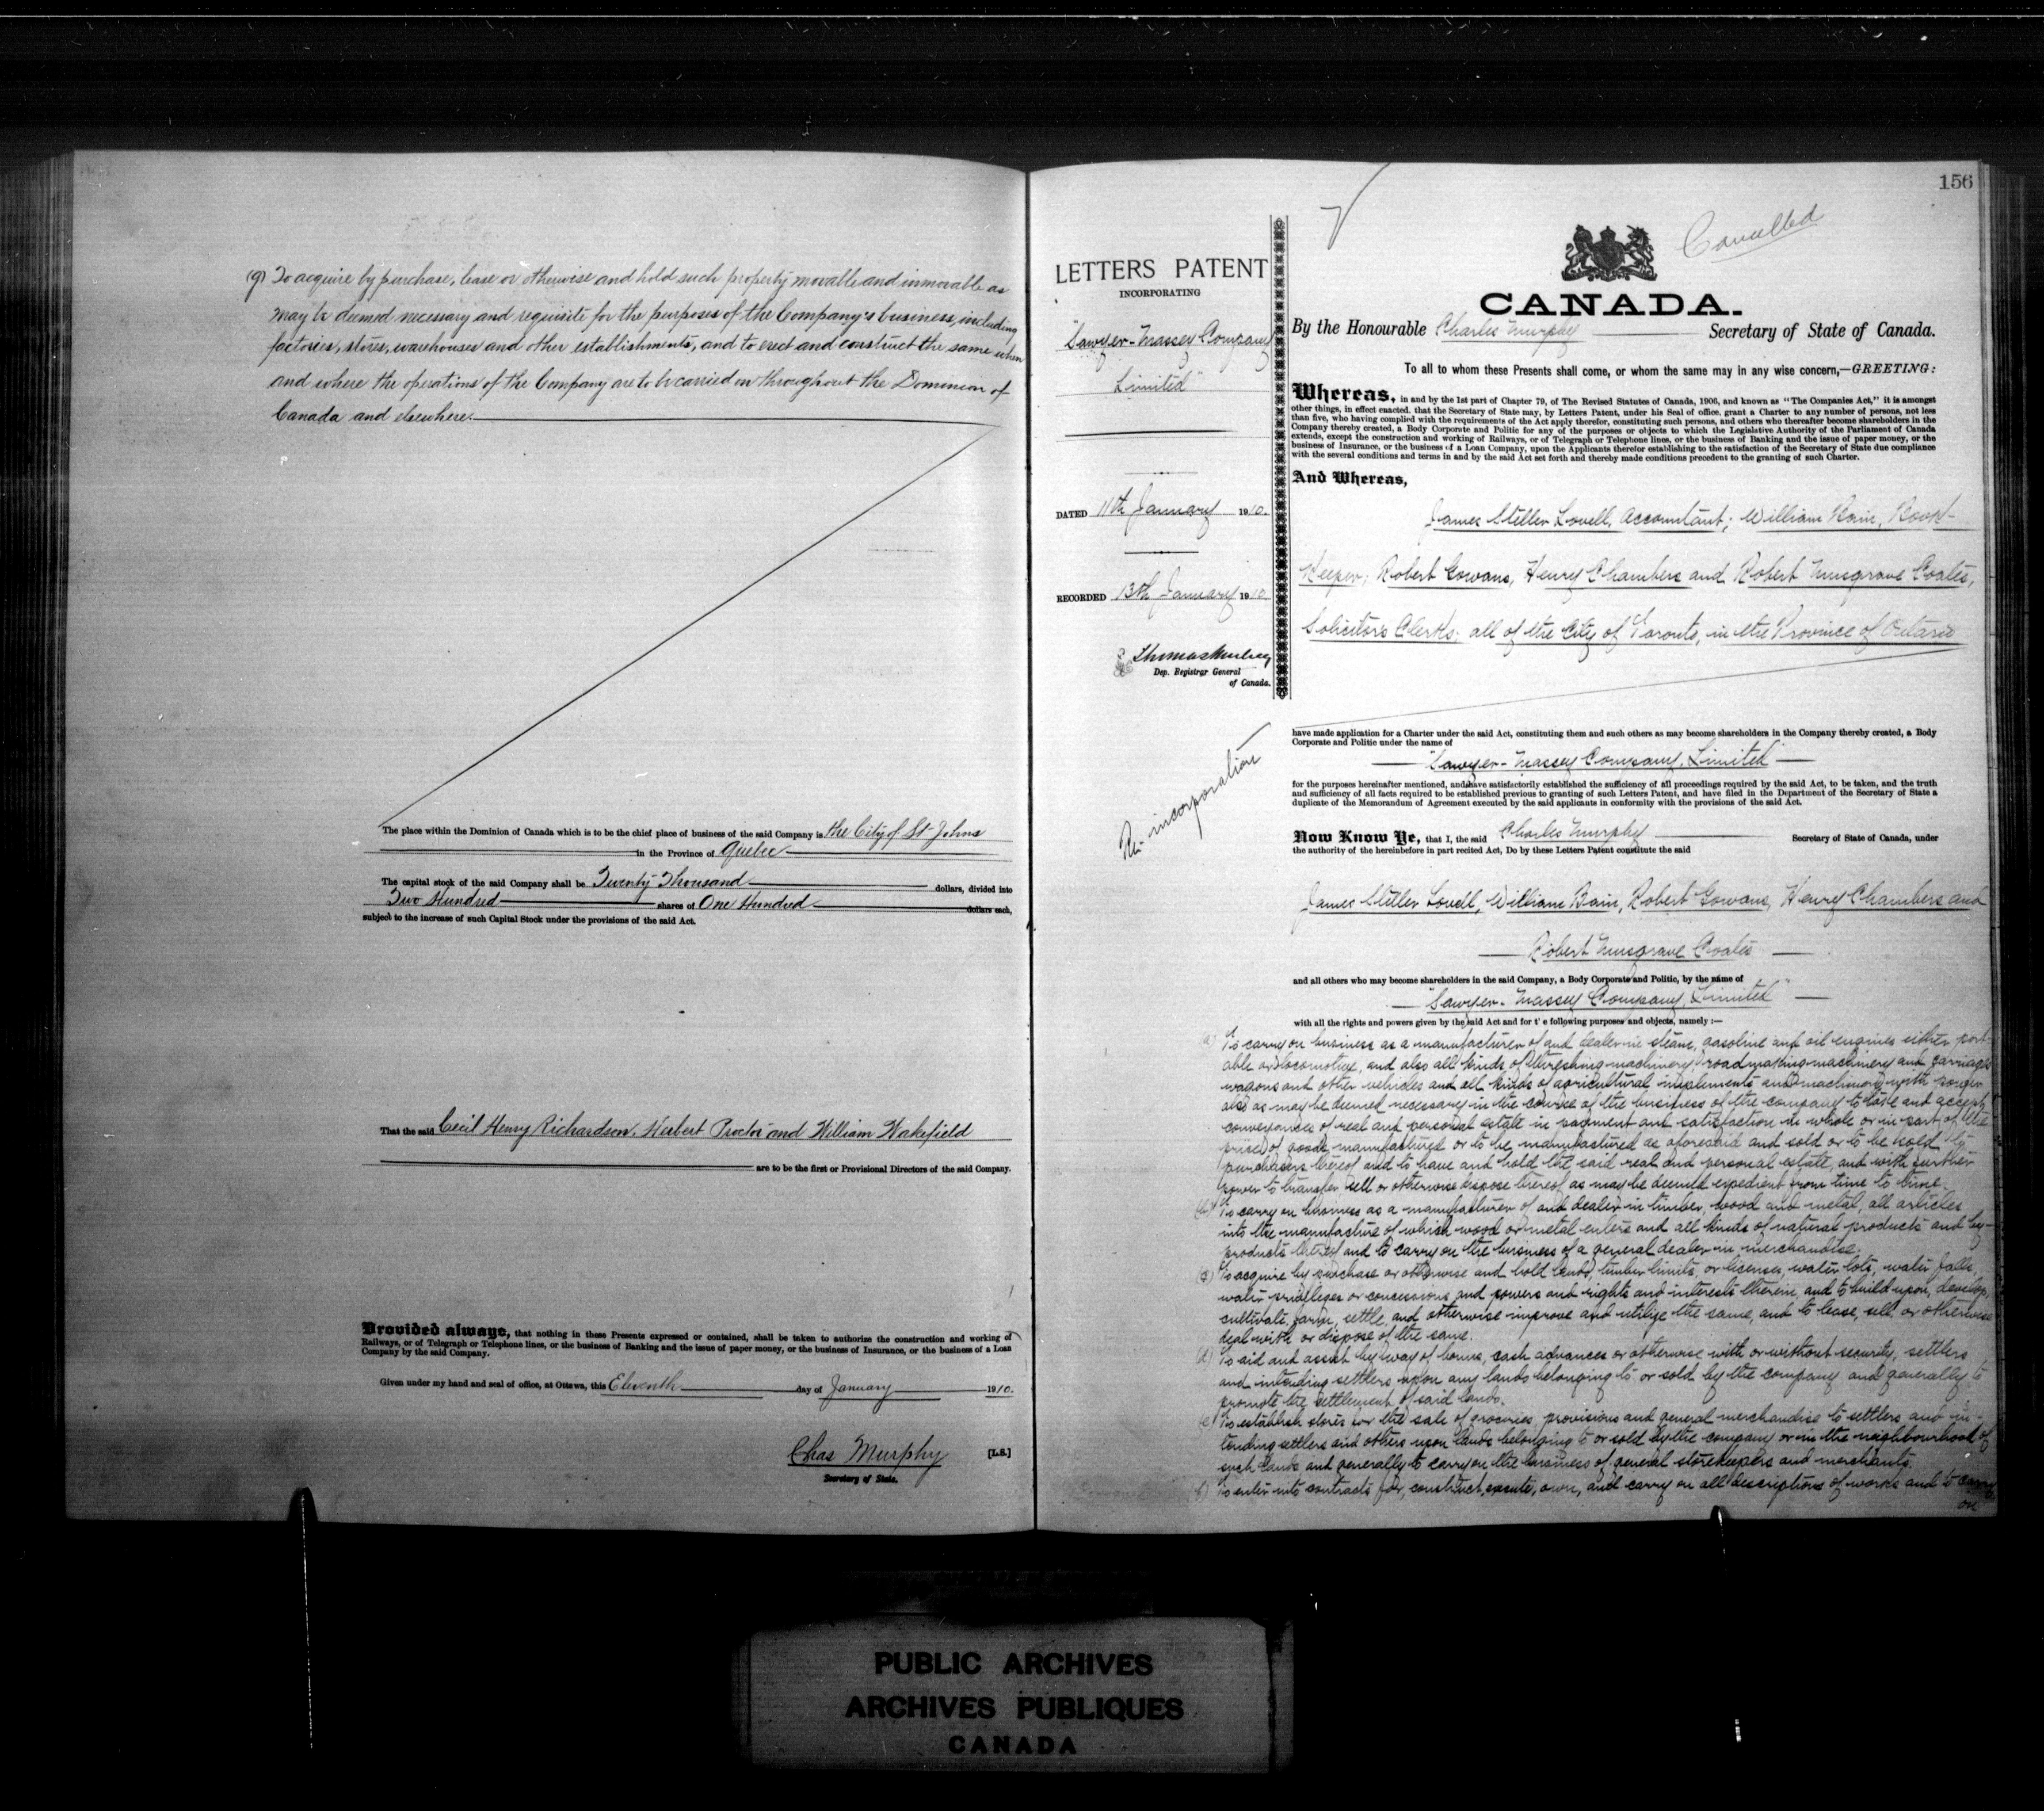 (g) To acquire by purchase, lease or otherwise and hold such property movable and inmovable as
may be deemed necessary and requisite for the purposes of the Company's business, including
factories, stores, warehouses and other establishments, and to erect and construct the same when
and where the operations of the Company are to be carried on throughout the Dominion of
Canada and elsewhere.
The place within the Dominion of Canada which is to be the chief place of business of the said Company is the City of St Johns
in the Province of Quebec
The capital stock of the said Company shall be Twenty Thousand dollars, divided into
Two Hundred shares of One Hundred dollars each,
subject to the increase of such Capital Stock under the provisions of the said Act.
That the said Cecil Henry Richardson, Herbert Proctor and William Wakefield
are to be the first or Provisional Directors of the said Company.
Provided always, that nothing in these Presents expressed or contained, shall be taken to authorize the construction and working of
Railways, or of Telegraph or Telephone lines, or the business of Banking and the issue of paper money, or the business of Insurance, or the business of a Loan
Company by the said Company.
Given under my hand and seal of office, at Ottawa, this Eleventh day of January 1910.
Chas Murphy [L.S.]
Secretary of State.
156
Cancelled
LETTERS PATENT
INCORPORATING
"Sawyer-Massey Company
Limited"
DATED 11th January 1910.
RECORDED 13th January 1910
Thomas Mulvey
Dep. Registrar General
of Canada.
Re-incorporation
CANADA.
By the Honourable Charles Murphy Secretary of State of Canada.
To all to whom these Presents shall come, or whom the same may in any wise concern,—GREETING:
Whereas, in and by the 1st part of Chapter 79, of The Revised Statutes of Canada, 1906, and known as "The Companies Act," it is amongst
other things, in effect enacted, that the Secretary of State may, by Letters Patent, under his Seal of office, grant a Charter to any number of persons, not less
than five, who having complied with the requirements of the Act apply therefor, constituting such persons, and others who thereafter become shareholders in the
Company thereby created, a Body Corporate and Politic for any of the purposes or objects to which the Legislative Authority of the Parliament of Canada
extends, except the construction and working of Railways, or of Telegraph or Telephone lines, or the business of Banking and the issue of paper money, or the
business of Insurance, or the business of a Loan Company, upon the Applicants therefor establishing to the satisfaction of the Secretary of State due compliance
with the several conditions and terms in and by the said Act set forth and thereby made conditions precedent to the granting of such Charter.
And Whereas,
James Steller Lovell, Accountant; William Bain, Book-
Keeper; Robert Gowans, Henry Chambers and Robert Musgrave Coates,
Solicitors Clerks; all of the City of Toronto, in the Province of Ontario
have made application for a Charter under the said Act, constituting them and such others as may become shareholders in the Company thereby created, a Body
Corporate and Politic under the name of
"Sawyer-Massey Company, Limited"
for the purposes hereinafter mentioned, and have satisfactorily established the sufficiency of all proceedings required by the said Act, to be taken, and the truth
and sufficiency of all facts required to be established previous to granting of such Letters Patent, and have filed in the Department of the Secretary of State a
duplicate of the Memorandum of Agreement executed by the said applicants in conformity with the provisions of the said Act.
Now Know Ye, that I, the said Charles Murphy Secretary of State of Canada, under
the authority of the hereinbefore in part recited Act, Do by these Letters Patent constitute the said
James Steller Lovell, William Bain, Robert Gowans, Henry Chambers and
Robert Musgrave Coates
and all others who may become shareholders in the said Company, a Body Corporate and Politic, by the name of
"Sawyer-Massey Company, Limited"
with all the rights and powers given by the said Act and for t' e following purposes and objects, namely :—
(a) To carry on business as a manufacturer of and dealer in steam, gasoline and oil engines either port-
able or locomotive, and also all kinds of threshing machinery, road making machinery and carriages
wagons and other vehicles and all kinds of agricultural implements and machinery with power
also as may be deemed necessary in the course of the business of the company to take and accept
conveyances of real and personal estate in payment and satisfaction in whole or in part of the
price of goods manufactured or to be manufactured as aforesaid and sold or to be sold to
purchasers thereof and to have and hold the said real and personal estate, and with further
power to transfer sell or otherwise dispose thereof as may be deemed expedient from time to time.
(b) To carry on business as a manufacturer of and dealer in timber, wood and metal, all articles
into the manufacture of which wood or metal enters and all kinds of natural products and by-
products thereof and to carry on the business of a general dealer in merchandise.
(c) To acquire by purchase or otherwise and hold lands, timber limits, or licenses, water lots, water falls,
water privileges or concessions and powers and rights and interests therein, and to build upon, develop,
cultivate, farm, settle, and otherwise improve and utilize the same, and to lease, sell or otherwise
deal with or dispose of the same.
(d) To aid and assist by way of bonus, cash advances or otherwise with or without security, settlers
and intending settlers upon any lands belonging to or sold by the company and generally to
promote the settlement of said lands.
(e) To establish stores for the sale of groceries, provisions and general merchandise to settlers and in-
tending settlers and others upon lands belonging to or sold by the company or in the neighbourhood of
such lands and generally to carry on the business of general storekeepers and merchants.
(f) To enter into contracts for, construct, execute, own, and carry on all descriptions of works and to carry
on
PUBLIC ARCHIVES
ARCHIVES PUBLIQUES
CANADA